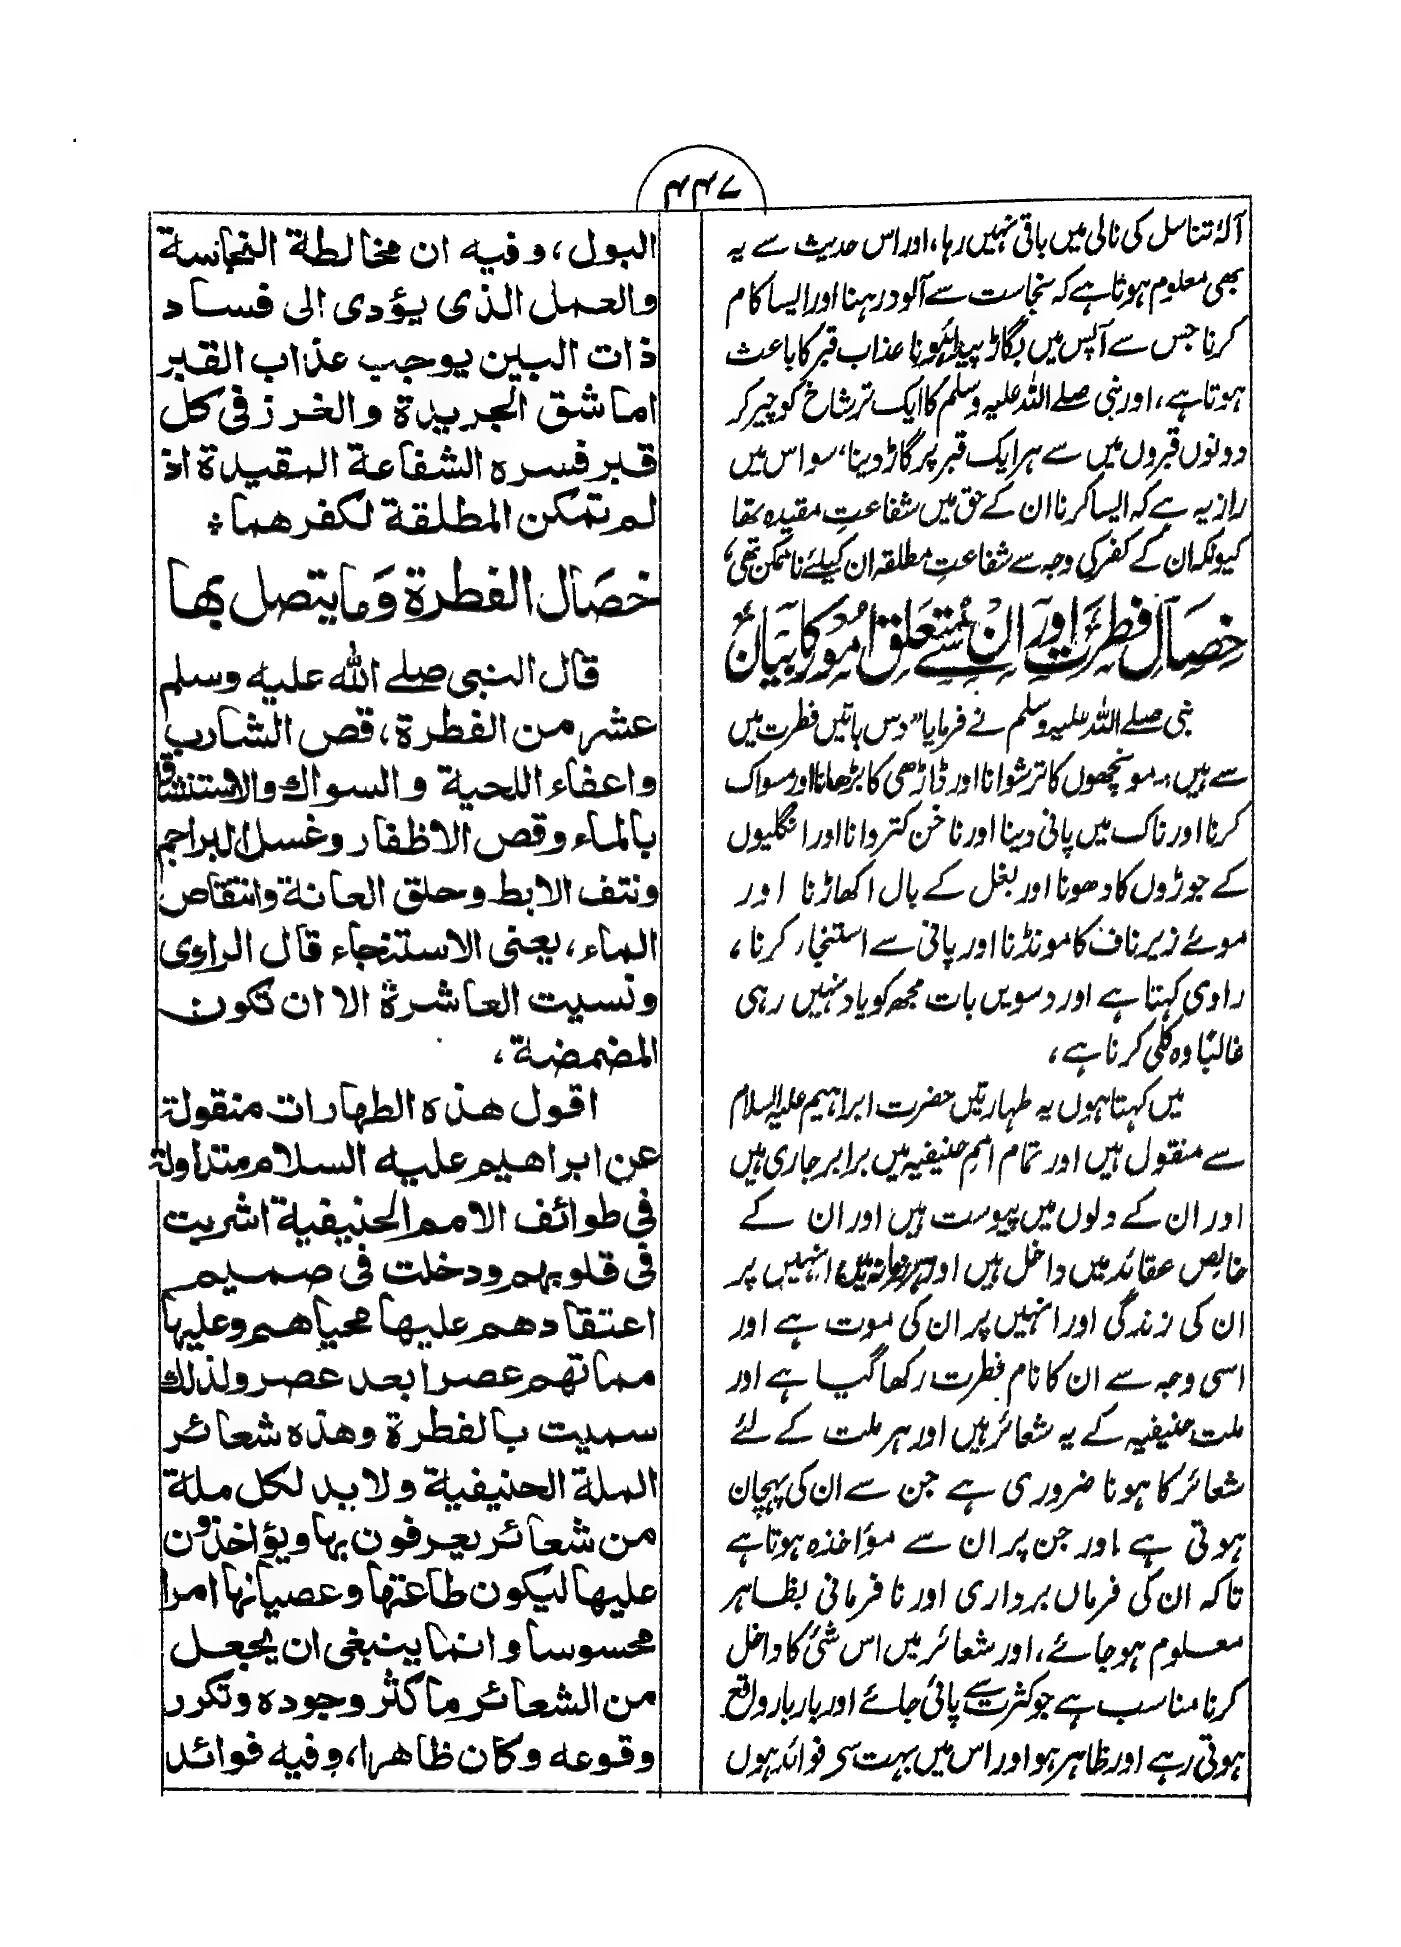 ۴۴۷
آلۂ تناسل کی نالی میں باقی نہیں رہا، اور اس حدیث سے یہ
بھی معلوم ہوتا ہے کہ نجاست سے آلودہ رہنا اور ایسا کام
کرنا جس سے آپس میں بگاڑ پیدا ہو عذاب قبر کا باعث
ہوتا ہے، اور نبی صلے اللہ علیہ وسلم کا ایک تر شاخ کو چیر کر
دونوں قبروں میں سے ہر ایک قبر پر گاڑ دینا، سو اس میں
راز یہ ہے کہ ایسا کرنا ان کے حق میں شفاعتِ مقیدہ تھا
کیونکہ ان کے کفر کی وجہ سے شفاعتِ مطلقہ ان کیلئے ناممکن تھی،
خِصَالِ فطرت اور اُن سے متعلق امور کا بیان
نبی صلے اللہ علیہ وسلم نے فرمایا "دس باتیں فطرت میں
سے ہیں۔ مونچھوں کا ترشوانا اور ڈاڑھی کا بڑھانا اور مسواک
کرنا اور ناک میں پانی دینا اور ناخن کتروانا اور انگلیوں
کے جوڑوں کا دھونا اور بغل کے بال اکھاڑنا اور
موئے زیر ناف کا مونڈنا اور پانی سے استنجا کرنا،
راوی کہتا ہے اور دسویں بات مجھ کو یاد نہیں رہی
غالبًا وہ کلی کرنا ہے،
میں کہتا ہوں یہ طہارتیں حضرت ابراہیم علیہ السلام
سے منقول ہیں اور تمام اممِ حنیفیہ میں برابر جاری ہیں
اور ان کے دلوں میں پیوست ہیں اور ان کے
خالص عقائد میں داخل ہیں اور ہر زمانہ میں انہیں پر
ان کی زندگی اور انہیں پر ان کی موت ہے اور
اسی وجہ سے ان کا نام فطرت رکھا گیا ہے اور
ملت حنیفیہ کے یہ شعائر ہیں اور ہر ملت کے لئے
شعائر کا ہونا ضروری ہے جن سے ان کی پہچان
ہوتی ہے اور جن پر ان سے مؤاخذہ ہوتا ہے
تاکہ ان کی فرماں برداری اور نافرمانی بظاہر
معلوم ہو جائے، اور شعائر میں اس شئ کا داخل
کرنا مناسب ہے جو کثرت سے پائی جائے اور بار بار واقع
ہوتی رہے اور ظاہر ہو اور اس میں بہت سی فوائد ہوں
البول، وفيه ان مخالطة النجاسة
والعمل الذى يؤدى الى فساد
ذات البين يوجب عذاب القبر
اما شق الجريدة والغرز فى كل
قبر فسره الشفاعة المقيدة اذ
لم تمكن المطلقة لكفرهما ؞
خصَال الفطرة وَما يتصل بها
قال النبى صلے الله عليه وسلم
عشر من الفطرة، قص الشارب
واعفاء اللحية والسواك والاستنشاق
بالماء وقص الاظفار وغسل البراجم
ونتف الابط وحلق العانة وانتقاص
الماء، يعنى الاستنجاء قال الراوى
ونسيت العاشرة الا ان تكون
المضمضة،
اقول هذه الطهارات منقولة
عن ابراهيم عليه السلام متداولة
فى طوائف الامم الحنيفية اشربت
فى قلوبهم ودخلت فى صميم
اعتقادهم عليها محياهم وعليها
مماتهم عصرا بعد عصر ولذلك
سميت بالفطرة وهذه شعائر
الملة الحنيفية ولا بد لكل ملة
من شعائر يعرفون بها ويؤاخذون
عليها ليكون طاعتها وعصيانها امرا
محسوسا وانما ينبغى ان يجعل
من الشعائر ما كثر وجوده وتكرر
وقوعه وكان ظاهرا، وفيه فوائد